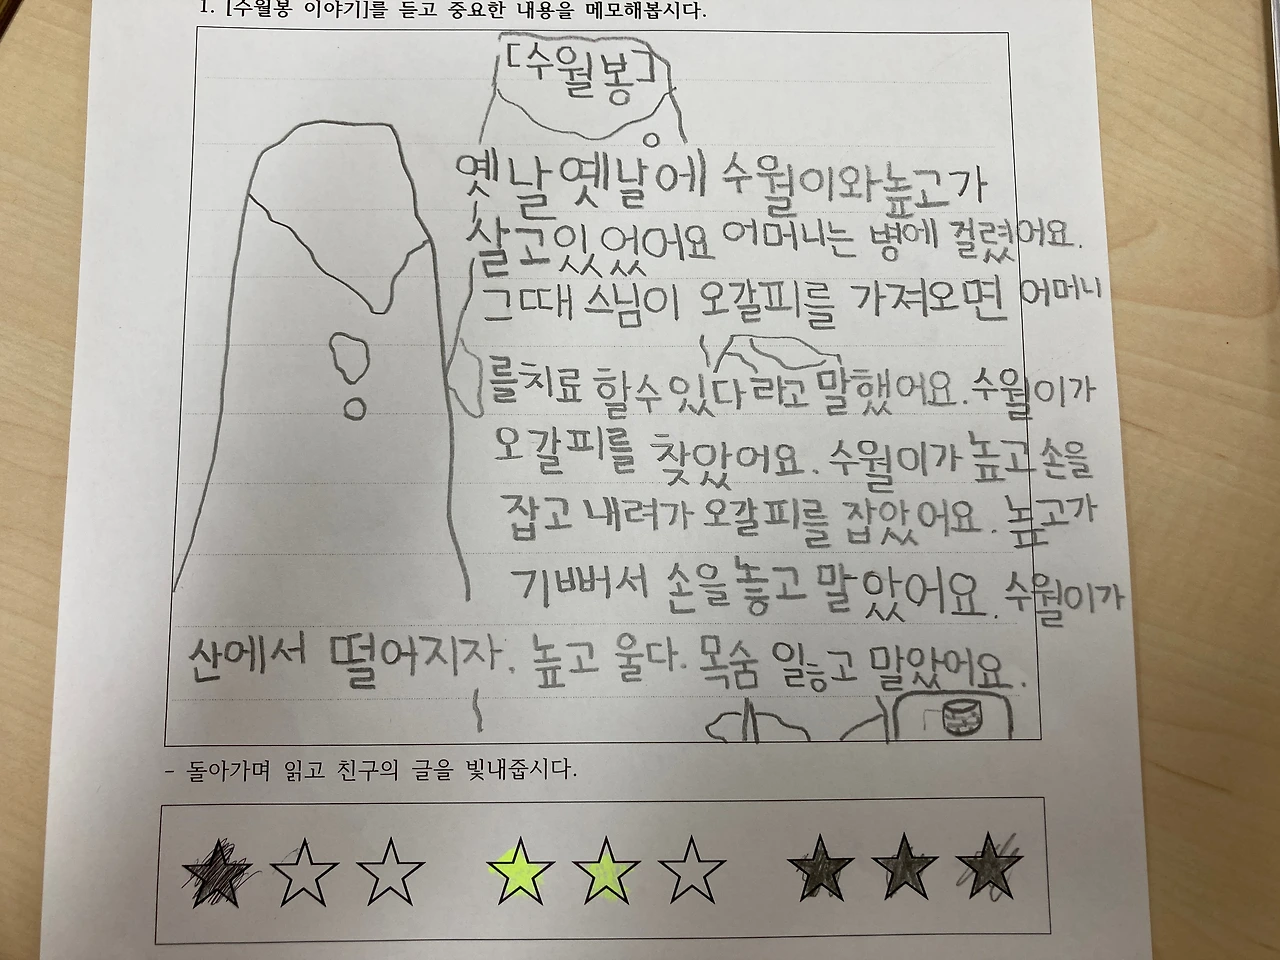 1. [수월봉 이야기]를 듣고 중요한 내용을 메모해봅시다.
[수월봉]
옛날옛날에 수월이와높고가
살고있었어요 어머니는 병에 걸렸어요.
그때 스님이 오갈피를 가져오면 어머니
를치료 할수있다라고 말했어요. 수월이가
오갈피를 찾았어요. 수월이가 높고 손을
잡고 내려가 오갈피를 잡았어요. 높고가
기뻐서 손을놓고 말았어요. 수월이가
산에서 떨어지자. 높고 울다. 목숨 잃고 말았어요.
- 돌아가며 읽고 친구의 글을 빛내줍시다.